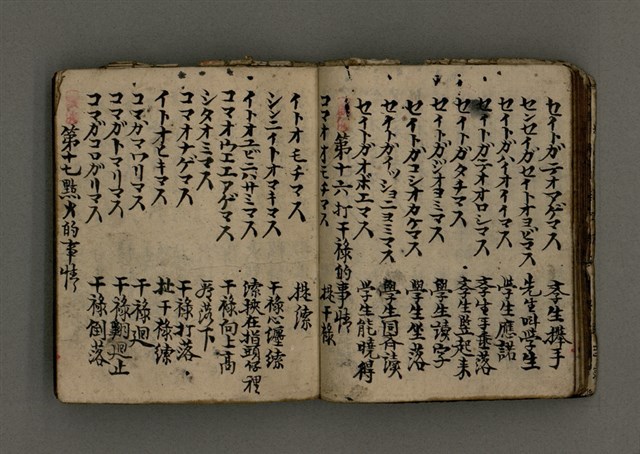 セイトガテオアゲマス 孝生攑手
センセイガセイトオヨビマス 先生叫學生
セイトガハイオイイマス 學生應諾
セイトガテオオロシマス 孝生手垂落
セイトガタチマス 孝生竪起来
セイトガジオヨミマス 學生讀字
セイトガコシオカケマス 學生坐落
セイトガイッショニヨミマス 學生同齐讀
セイトガオボエマス 學生能曉得
第十六打干祿的事情
コマオオモチマス 提干祿
イトオモチマス 提索
シンニイトオマキマス 干祿心纏索
イトオユビニハサミマス 索挾在指頭仔裡
コマオウエエアゲマス 干祿向上高
シタオミマス
コマオナゲマス 干祿打落
イトオヒキマス 扯干祿索
コマガマワリマス 干祿迴
コマガトマリマス 干祿迴止
コマガコロガリマス 干祿倒落
第十七點火的事情